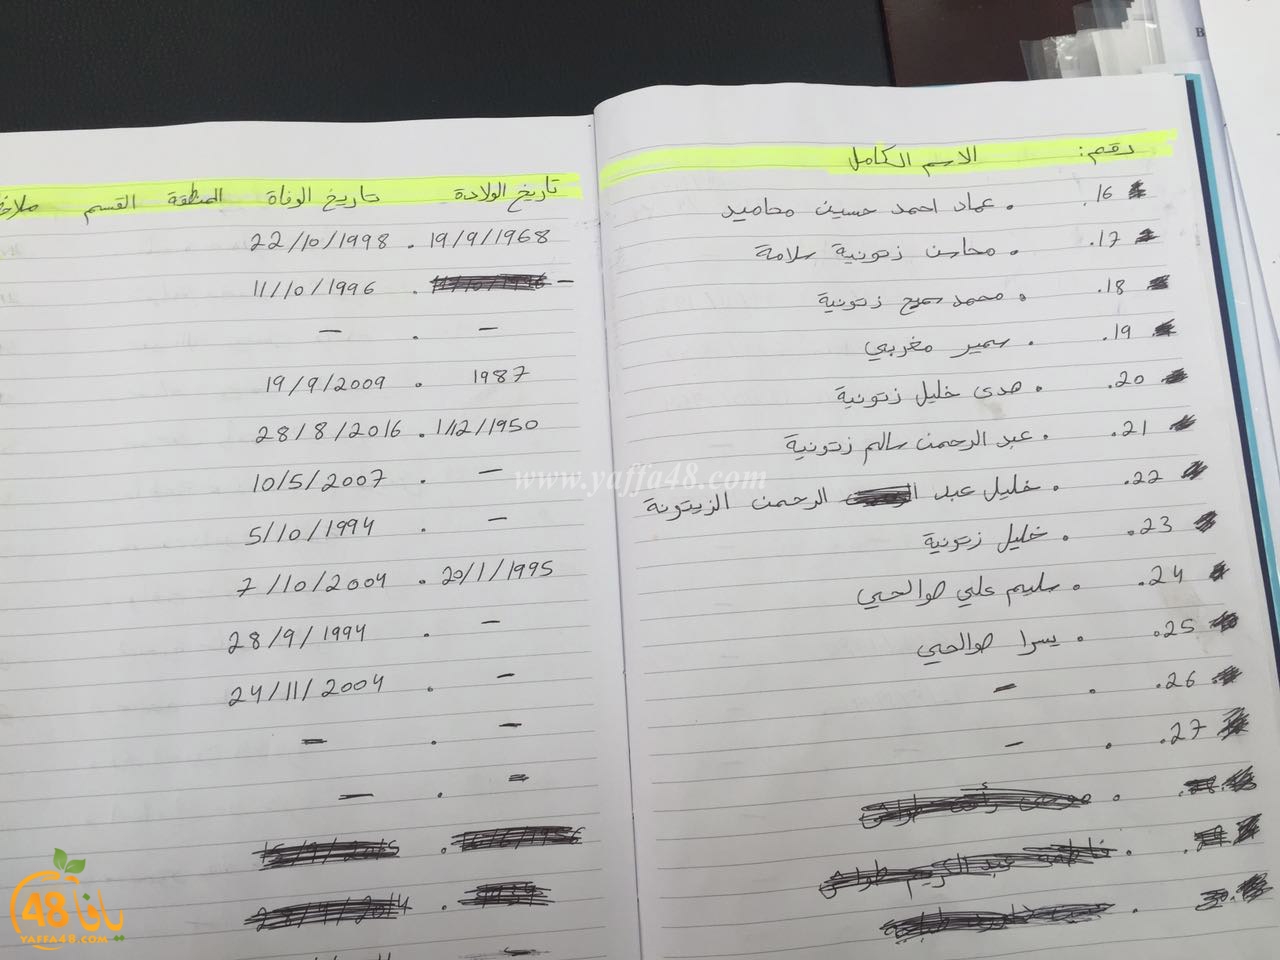 رقم: الاسم الكامل
16. عماد احمد حسين محاميد
17. محاسن زتونية سلامة
18. محمد سميح زتونية
19. سمير مغربي
20. هدى خليل زتونية
21. عبد الرحمن سالم زتونية
22. خليل عبد الرحمن الزيتونة
23. خليل زتونية
24. سليم علي صوالحي
25. يسرا صوالحي
26. -
27. -
تاريخ الولادة تاريخ الوفاة المنطقة القسم
19/9/1968 . 22/10/1998
- . 11/10/1996
- . -
1987 . 19/9/2009
1/12/1950 . 28/8/2016
- . 10/5/2007
- . 5/10/1994
20/1/1995 . 7/10/2004
- . 28/9/1994
- . 24/11/2004
- . -
= . -
www.yaffa48.com
يافا 48
YAFFA48.COM